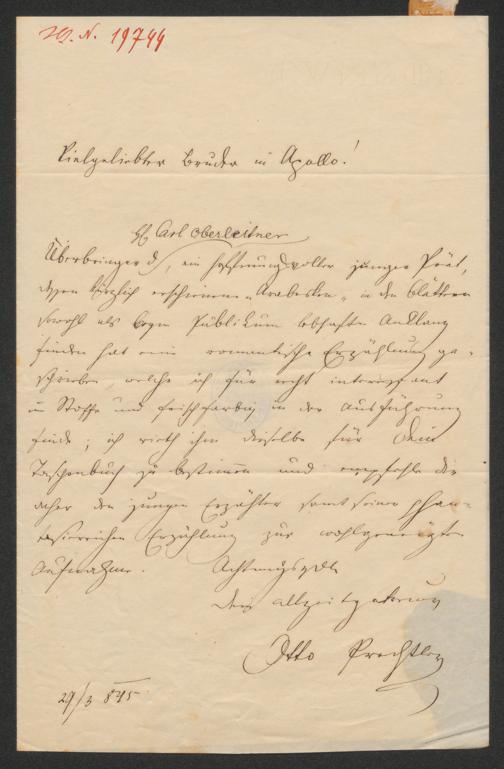 J. N. 19744
Vielgeliebter Bruder in Apollo!
H. Carl Oberleitner
Überbringer d, ein hoffnungsvoller junger Poet,
dessen kürzlich erschienene „Arabesken“ in den Blättern
sowohl als beym Publikum lebhaften Anklang
gefunden hat eine romantische Erzählung ge-
schrieben, welche ich für recht interessant
im Stoffe und frischfarbig in der Ausführung
finde; ich rieth ihm dieselbe für Dein
Taschenbuch zu bestimmen und empfehle Dir
daher den jungen Erzähler samt seiner phan-
tasiereichen Erzählung zur wohlgeneigten
Aufnahme.
Achtungsvollst
Dein allzeit getreuer
Otto Prechtler
29/3 845